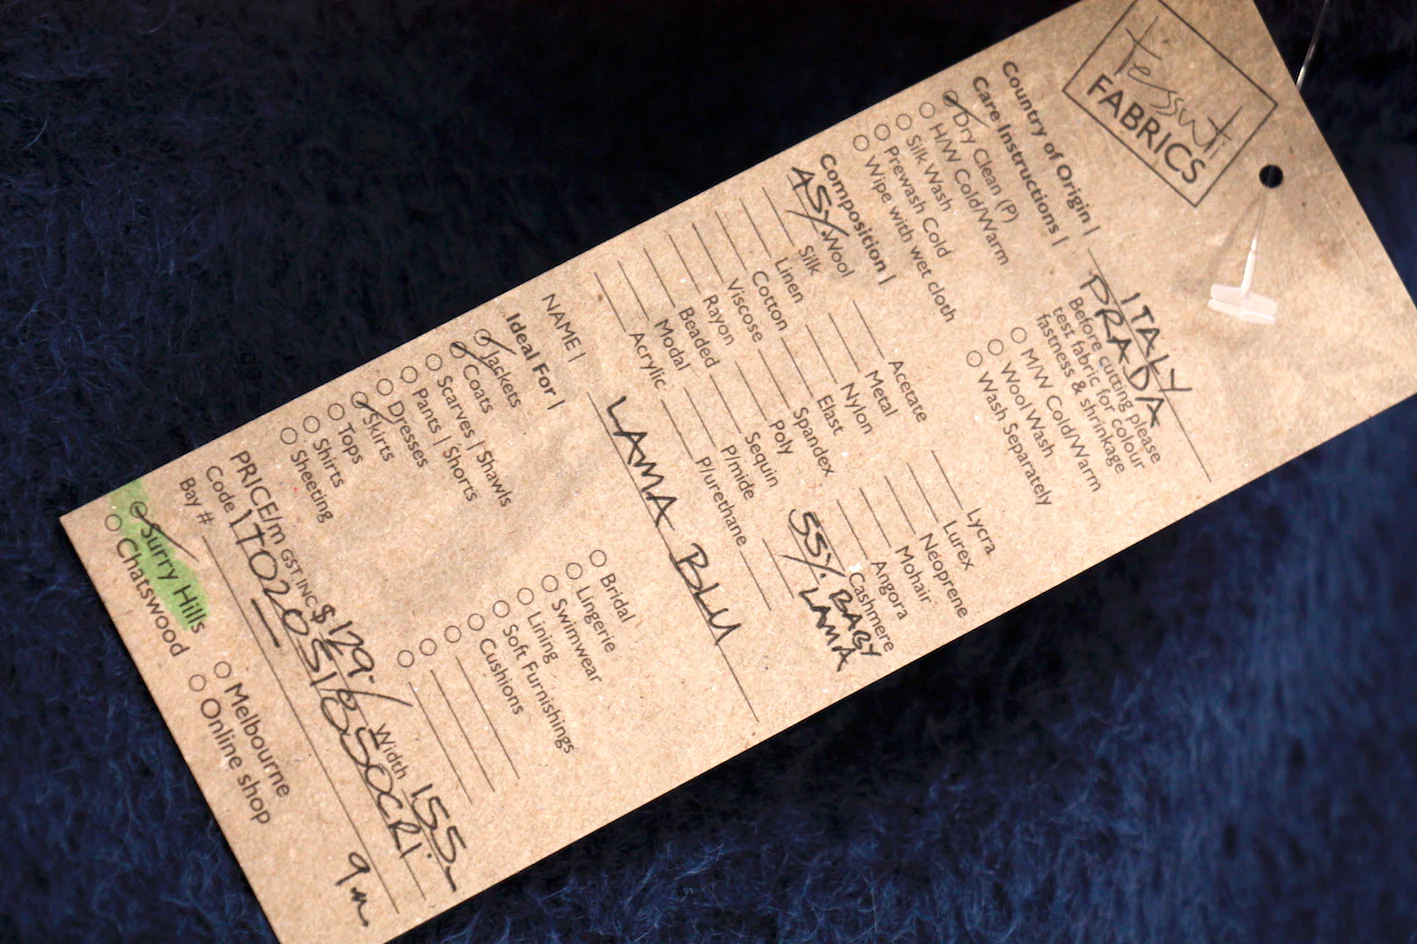 tessuti
FABRICS
Country of Origin | ITALY
PRADA
Care Instructions | Before cutting please
test fabric for colour
fastness & shrinkage
Dry Clean (P)
H/W Cold/Warm
Silk Wash
Prewash Cold
Wipe with wet cloth
M/W Cold/Warm
Wool Wash
Wash Separately
Composition |
45% Wool
Silk
Linen
Cotton
Viscose
Rayon
Beaded
Modal
Acrylic
Acetate
Metal
Nylon
Elast
Spandex
Poly
Sequin
P/mide
P/urethane
Lycra
Lurex
Neoprene
Mohair
Angora
Cashmere
55% BABY
LAMA
NAME | LAMA BLU
Ideal For |
Jackets
Coats
Scarves | Shawls
Pants | Shorts
Dresses
Skirts
Tops
Shirts
Sheeting
Bridal
Lingerie
Swimwear
Lining
Soft Furnishings
Cushions
PRICE/m GST INC $129.- Width 155.-
Code
Bay # 9m
Surry Hills
Chatswood
Melbourne
Online shop